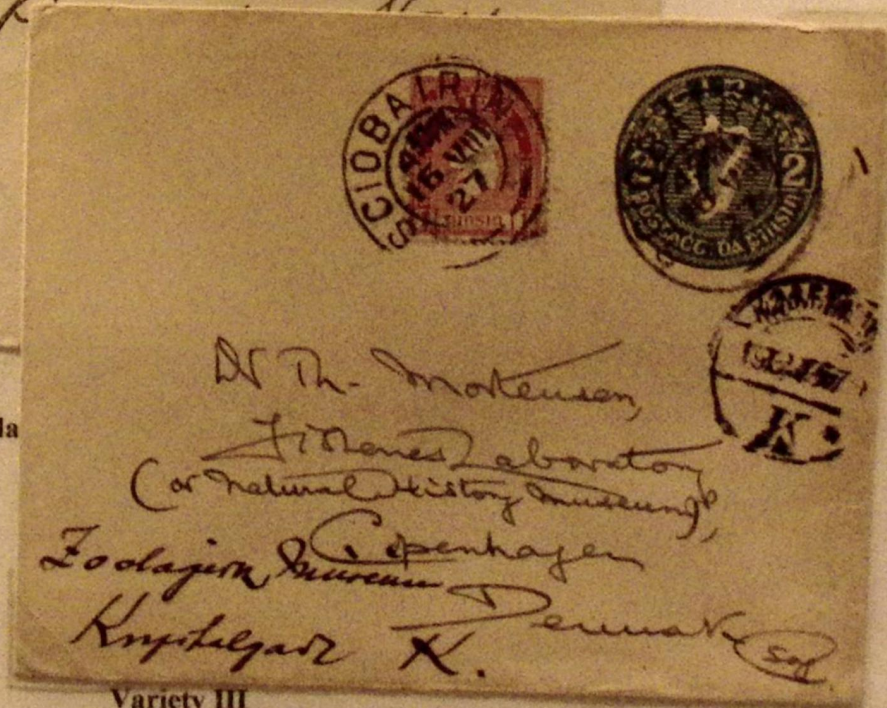 SCIOBAIRÍN
4 PM
16 VIII
27
pinsin 1
2
POSTACC. DA pinsin
K
Dr Th- Mortensen,
Fisheries Laboratory
(or Natural History Museum),
Copenhagen
Denmark
Zoologisk Museum
Krystalgade K.
Variety III